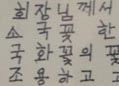 회장님께서
소국꽃 한
국화꽃의 꽃
조용하고 고